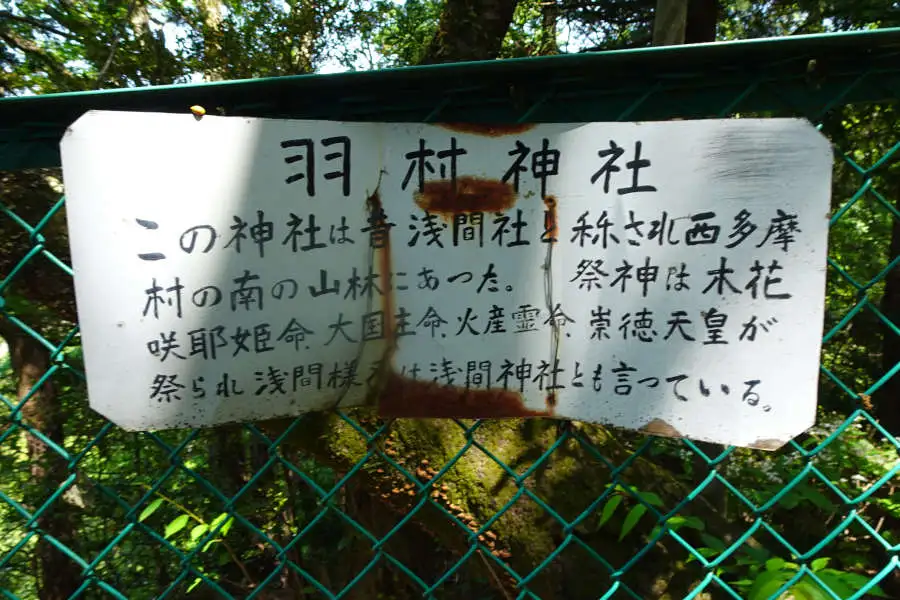 羽村神社
この神社は昔浅間社と称され西多摩
村の南の山林にあった。 祭神は木花
咲耶姫命 大国主命 火産霊命 崇徳天皇が
祭られ浅間様又は浅間神社とも言っている。